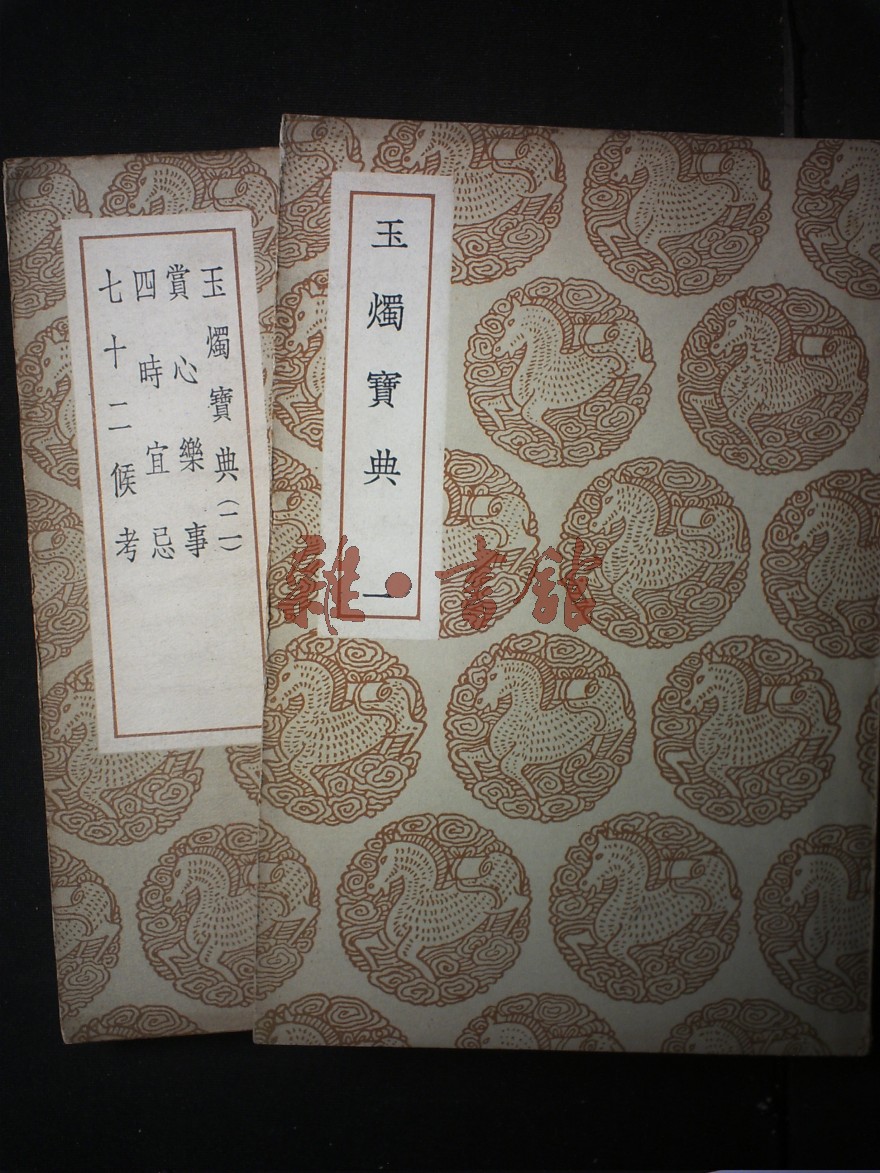 玉燭寶典 一
玉燭寶典(二)
賞心樂事
四時宜忌
七十二候考
雜·書館